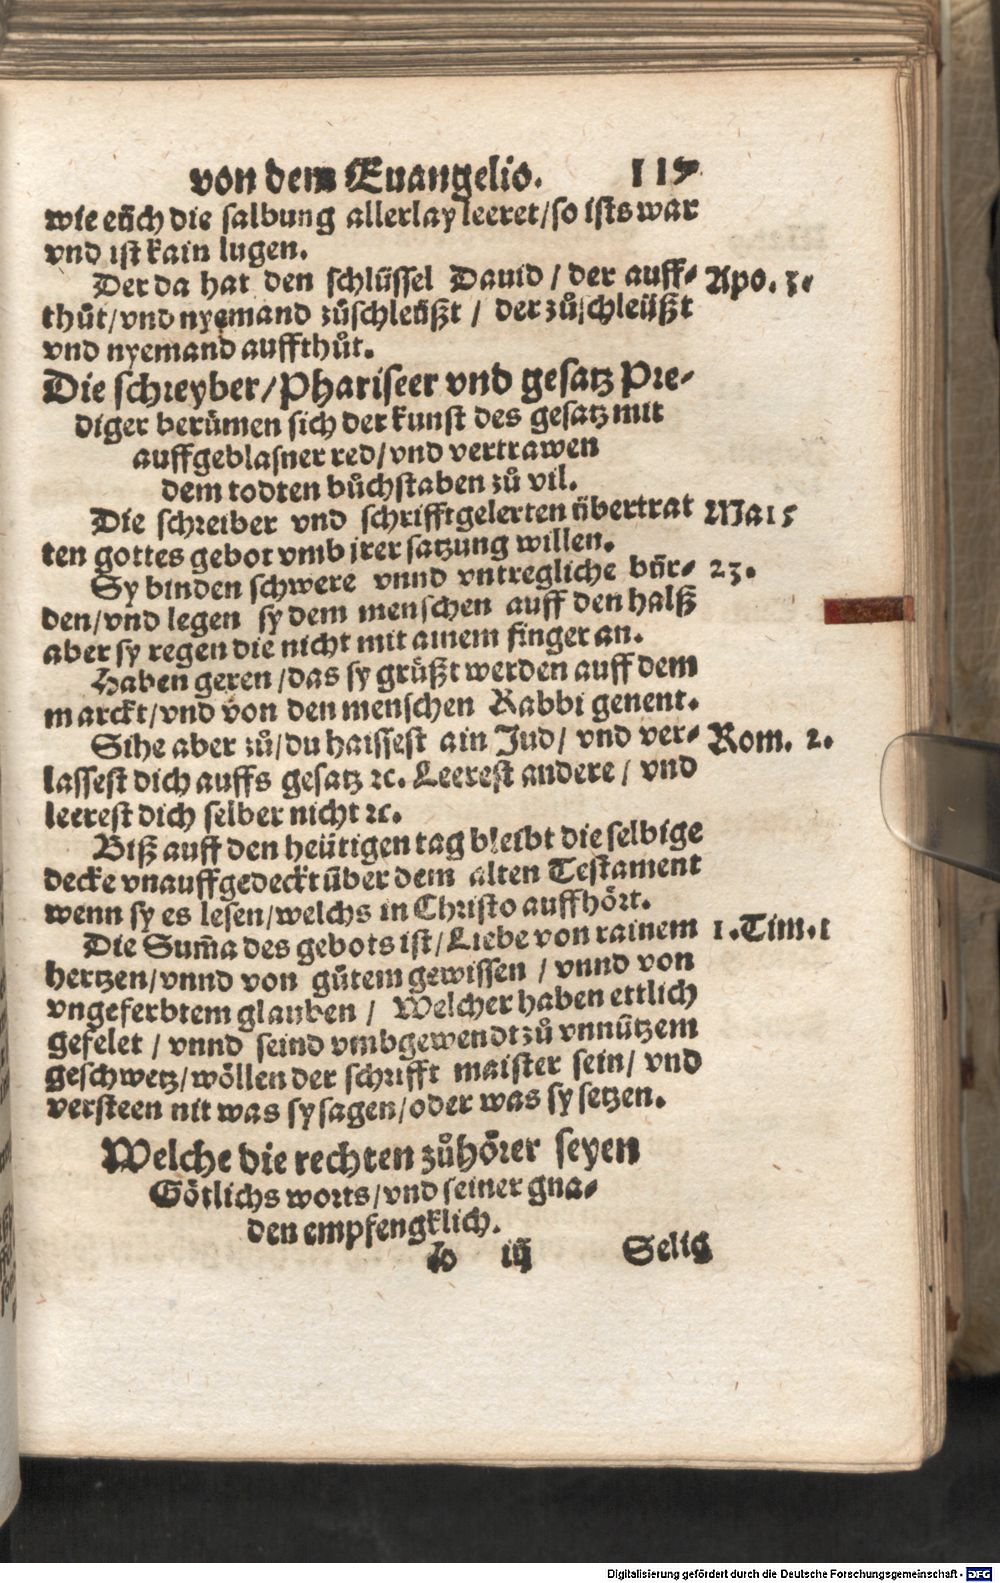 von dem Euangelio. 117
wie eüch die salbung allerlay leeret/so ists war
vnd ist kain lugen.
Der da hat den schlüssel Dauid / der auff- Apo. 3.
thůt/vnd nyemand zůschleüßt / der zůschleüßt
vnd nyemand auffthůt.
Die schreyber/Phariseer vnd gesatz Pre-
diger berümen sich der kunst des gesatz mit
auffgeblasner red/vnd vertrawen
dem todten bůchstaben zů vil.
Die schreiber vnd schrifftgelerten übertrat Mat 5
ten gottes gebot vmb irer satzung willen.
Sy binden schwere vnnd vntregliche bür- 23.
den/vnd legen sy dem menschen auff den halß
aber sy regen die nicht mit ainem finger an.
Haben geren/das sy grüßt werden auff dem
marckt/vnd von den menschen Rabbi genent.
Sihe aber zů/du haissest ain Jud/ vnd ver- Rom. 2.
lassest dich auffs gesatz ꝛc. Leerest andere / vnd
leerest dich selber nicht ꝛc.
Biß auff den heütigen tag bleibt die selbige
decke vnauffgedeckt über dem alten Testament
wenn sy es lesen/welchs in Christo auffhört.
Die Sum̃a des gebots ist/Liebe von rainem 1.Tim.1
hertzen/vnnd von gůtem gewissen / vnnd von
vngeferbtem glauben / Welcher haben ettlich
gefelet / vnnd seind vmbgewendt zů vnnützem
geschwetz/wöllen der schrifft maister sein/ vnd
versteen nit was sy sagen/oder was sy setzen.
Welche die rechten zůhörer seyen
Götlichs worts/vnd seiner gna-
den empfengklich.
iij Selig
Digitalisierung gefördert durch die Deutsche Forschungsgemeinschaft - DFG